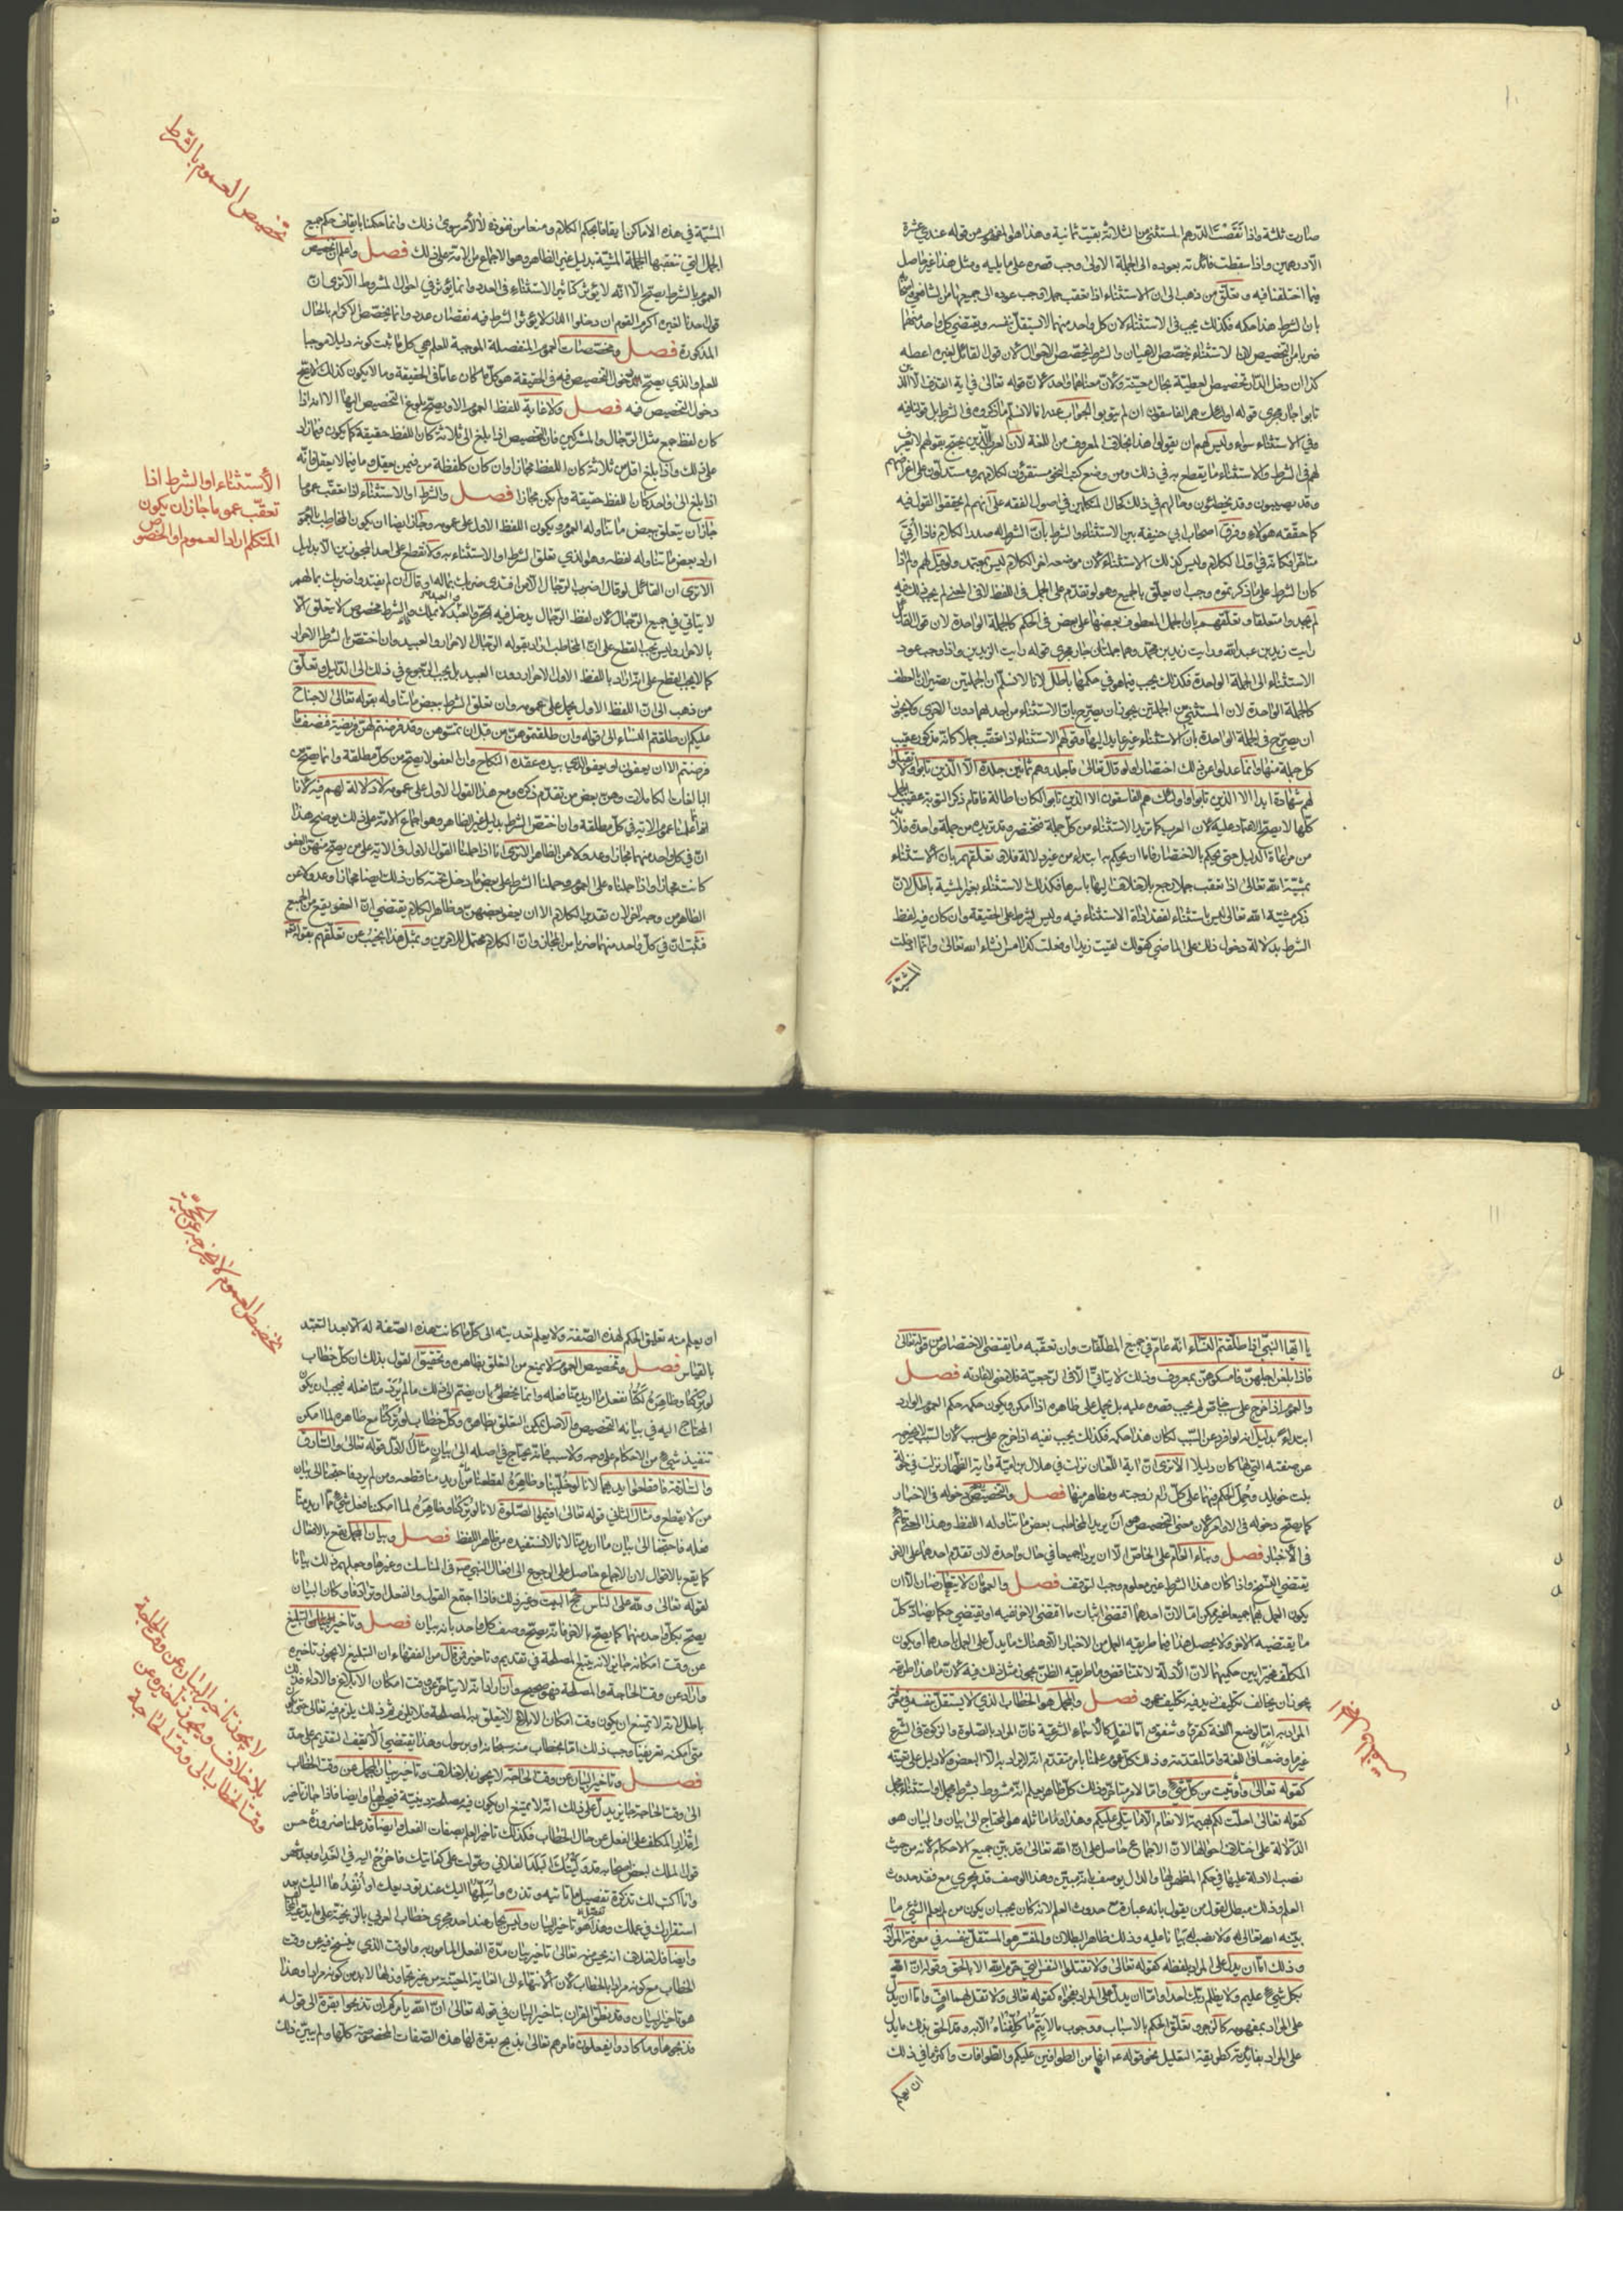 ١٠
صارت ثلثة واذا نقصت الدرهم المستثنى من الثلاثة بقيت ثمانية وهذا هو المفهوم من قوله عندي عشرة
الا درهمين واذا سقطت فائدته بعوده الى الجملة الاولى وجب قصره على ما يليه ومثل هذا غير حاصل
فيما اختلفنا فيه وتعلق من ذهب الى ان الاستثناء اذا تعقب جملا وجب عوده الى جميعها من الشافعي واصحابه
بان الشرط هذا حكمه فكذلك يجب فى الاستثناء لان كل واحد منهما لا يستقل بنفسه ويقتضي كل واحد منهما
ضربا من التخصيص لان الاستثناء يخصص الاعيان والشرط يخصص الاحوال لان قول القائل لغيره اعطه
كذا ان دخل الدار تخصيص للعطية بحال معينة ولان معناهما واحد لان قوله تعالى في اية القذف الا الذين
تابوا جار مجرى قوله اولئك هم الفاسقون ان لم يتوبوا الجواب عنه انا لا نسلم ما ذكروه فى الشرط بل قولنا فيه
وفي الاستثناء سواء وليس لهم ان يقولوا هذا بخلاف المعروف من اللغة لان اهل العربية الذين يحتج بقولهم لا يعرف
لهم فى الشرط ولا الاستثناء ما يقطع به في ذلك ومن وضع كتب النحو مستقرؤن لكلامهم ومستدلون على اغراضهم
وفي ذلك قد يصيبون وقد يخطئون وما لهم في ذلك كحال المتكلمين في اصول الفقه على انهم لم يحققوا القول فيه
كما حققه هؤلاء وفرق اصحاب ابي حنيفة بين الاستثناء والشرط بان الشرط له صدر الكلام فاذا اتى
متاخرا فكانه في اول الكلام وليس كذلك الاستثناء لان موضعه اخر الكلام ليس بمعتمد
كان الشرط على ما ذكرتموه وجب ان يعلق بالجميع وهو لو تقدم على الجمل فى اللفظ
لم يجد واستعلقا وتعلقهم بان الجمل المعطوف بعضها على بعض فى الحكم كالجملة الواحدة لان قول القائل
رايت زيد بن عبد الله ورايت زيد بن محمد وهما جملتان جار مجرى قوله رايت الزيدين واذا وجب عود
الاستثناء الى الجملة الواحدة فكذلك يجب فيما هو في حكمها باطل لانا لا نسلم ان الجملتين تصيران بالعطف
كالجملة الواحدة لان المستثني من الجملتين يجوز ان يصرح بان الاستثناء من احديهما دون الاخرى ولا يجوز
ان يصرح فى الجملة الواحدة بان الاستثناء غير عايد اليها وقولهم الاستثناء اذا تعقب جملا كانه مذكور عقيب
كل جملة منها وانما عدلوا عن ذلك اختصارا فلو قال تعالى فاجلدوهم ثمانين جلدة الا الذين تابوا ولا تقبلوا
لهم شهادة ابدا الا الذين تابوا واولئك هم الفاسقون الا الذين تابوا لكان اطالة فاقام ذكر التوبة عقيب الجمل
كلها لا يصح الاعتماد عليه لان العرب كما تريد الاستثناء من كل جملة فتختصر وقد تريده من جملة واحدة فلا
من مراعاة الدليل حتى نحكم بالاختصار فاما ان نحكم به ابتداء من غير دلالة فلا تعلقهم بان الاستثناء
بمشية الله تعالى اذا تعقب جملا رجع بلا خلاف اليها باسرها فكذلك الاستثناء بغير المشية باطل لان
ذكر مشية الله تعالى ليس باستثناء لفقد اداة الاستثناء فيه وليس بشرط على الحقيقة وان كان فيه لفظ
الشرط بدلالة دخول ذلك على الماضي كقولك لقيت زيدا وفعلت كذا امس انشاء الله تعالى وانما ادخلت
المشية
تخصيص العموم بالشرط
المشية في هذه الاماكن ايقافا لحكم الكلام ومنعا من نفوذه لا لامر سوى ذلك وانما حكمنا بايقاف حكم جميع
الجمل التي تتعقبها الجملة المشية بدليل غير الظاهر وهو الاجماع من الامة على ذلك فصل واعلم ان تخصيص
العموم بالشرط يصح الا انه لا يؤثر كتاثير الاستثناء فى العدد وانما يؤثر في احوال المشروط الا ترى ان
قول احدنا لغيره اكرم القوم ان دخلوا الدار لا يؤثر الشرط فيه نقصان عدد وانما يخصص الاكرام بالحال
المذكورة فصل ومخصصات العموم المنفصلة الموجبة للعلم هي كل ما ثبت كونه دليلا موجبا
للعلم والذي يصح دخول التخصيص فيه فى الحقيقة هو كل ما كان عاما في الحقيقة وما لا يكون كذلك لا يصح
دخول التخصيص فيه فصل ولا غاية للفظ العموم الا ويصح بلوغ التخصيص اليها الا انه اذا
كان لفظ جمع مثل الرجال والمشركين فان التخصيص اذا بلغ الى ثلاثة كان اللفظ حقيقة كما يكون فيما زاد
على ذلك واذا بلغ اقل من ثلاثة كان اللفظ مجازا وان كان كلفظة من فيمن يعقل وما فيما لا يعقل فانه
اذا بلغ الى واحد كان اللفظ حقيقة ولم يكن مجازا فصل والشرط او الاستثناء اذا تعقب عموما
جاز ان يتعلق ببعض ما تناوله العموم ويكون اللفظ الاول على عمومه وجاز ايضا ان يكون المخاطب بالعموم
اراد بعض ما تناوله لفظه وهو الذي تعلق الشرط او الاستثناء به ولا نقطع على احد المجوزين الا بدليل
الا ترى ان القائل لو قال اضرب الرجال الا من افتدى ضربك بماله او قال ان لم يفتدوا ضربك بمالهم
لا يتاتي في جميع الرجال لان لفظ الرجال يدخل فيه الحر والعبد والعبد لا يملك والشرط مخصوص لا يتعلق الا
بالاحرار وليس يجب القطع على ان المخاطب اراد بقوله الرجال الاحرار والعبيد وان اختص الشرط الاحرار
كما لا يجب القطع على انه اراد باللفظ الاول الاحرار دون العبيد بل يجب الرجوع في ذلك الى الدليل وتعلق
من ذهب الى ان اللفظ الاول يحمل على عمومه وان تعلق الشرط ببعض ما تناوله بقوله تعالى لا جناح
عليكم ان طلقتم النساء الى قوله وان طلقتموهن من قبل ان تمسوهن وقد فرضتم لهن فريضة فنصف ما
فرضتم الا ان يعفون او يعفو الذي بيده عقدة النكاح وان العفو لا يصح من كل مطلقة وانما يصح من
البالغات الكاملات وهن بعض من تقدم ذكره ومع هذا القول الاول على عمومه لا دلالة لهم فيه لانا
انما حملنا عموم الاية في كل مطلقة وان اختص الشرط بدليل غير الظاهر وهو اجماع الامة على ذلك يوضح هذا
ان في كل واحد منهما مجازا وعدولا عن الظاهر الا ترى انا اذا حملنا القول الاول فى الاية على من يصح منهن العفو
كانت مجازا واذا حملناه على العموم وحملنا الشرط على بعض ما دخل تحته كان ذلك ايضا مجازا وعدولا عن
الظاهر من وجه اخر لان تقدير الكلام الا ان يعفو بعضهن وظاهر الكلام يقتضي ان العفو يقع من الجميع
فثبت ان في كل واحد منهما ضربا من المجاز وان الكلام محتمل للامرين وبمثل هذا نجيب عن تعلقهم بقوله
الاستثناء او الشرط اذا
تعقب عموما جاز ان يكون
المتكلم اراد العموم او الخصوص
١١
يا ايها النبي اذا طلقتم النساء انه عام في جميع المطلقات وان تعقبه ما يقتضي الاختصاص من قوله تعالى
فاذا بلغن اجلهن فامسكوهن بمعروف وذلك لا يتاتي الا فى الرجعية فلا معنى لاعادته فصل
والعموم اذا خرج على سبب خاص لم يجب قصره عليه بل يحمل على ظاهره اذا امكن ويكون حكمه حكم العموم الوارد
ابتداء بدليل انه لو افرد عن السبب لكان هذا حكمه فكذلك يجب فيه اذا خرج على سبب لان السبب لا يخرجه
عن صفته التي لها كان دليلا الا ترى ان اية اللعان نزلت في هلال بن امية واية الظهار نزلت في خولة
بنت خويلد وحمل الحكم فيهما على كل رام زوجته ومظاهر منها فصل والتخصيص يصح دخوله فى الاخبار
كما يصح دخوله فى الاوامر لان معنى التخصيص هو ان يريد المخاطب بعض ما تناوله اللفظ وهذا المعنى قائم
فى الاخبار فصل وبناء العام على الخاص الا ان يردا جميعا في حال واحدة لان تقدم احدهما على الاخر
يقتضي النسخ واذا كان هذا الشرط غير معلوم وجب التوقف فصل والعمومان لا يتعارضان الا ان
يكون العمل بهما جميعا غير ممكن اما لان احدهما اقتضى اثبات ما اقتضى الاخر نفيه او يقتضي حكما يضاد كل
ما يقتضيه الاخر ولا يحصل هذا فيما طريقه العمل من الاخبار الا وهناك ما يدل على العمل باحدهما او يكون
المكلف مخيرا بين حكميهما لان الادلة لا تتناقض وما طريقه الظن يجوز مثل ذلك فيه لان ما هذا طريقه
يجوز ان يخالف تكليف زيد فيه تكليف عمرو فصل والمجمل هو الخطاب الذي لا يستقل بنفسه في معرفة
المراد به اما لوضع اللغة كقرؤ وشفق او للنقل كالاسماء الشرعية فان المراد بالصلوة والزكوة في الشرع
غير ما وضعا في اللغة واما لمقدمة وذلك كل عموم علمنا بامر متقدم انه لا يراد به الا البعض ولا دليل على تعيينه
كقوله تعالى واوتيت من كل شيء واما لامر متاخر وذلك كل ظاهر يعلم انه مشروط بشرط مجمل او استثناء مجمل
كقوله تعالى احلت لكم بهيمة الانعام الا ما يتلى عليكم وهذا وما ماثله هو المحتاج الى بيان والبيان هو
الدلالة على اختلاف احوالها لان الاجماع حاصل على ان الله تعالى قد بين جميع الاحكام لانه من حيث
نصب الادلة عليها في حكم المظهر لها والدال يوصف بانه مبين وهذا الوصف قد يجري مع فقد حدوث
العلم وذلك مبطل لقول من يقول بانه عبارة عن حدوث العلم لانه كان يجب ان يكون من لم يعلم الشيء ما
بينه الله تعالى له ولا نصب له بيانا عليه وذلك ظاهر البطلان والمفسر هو المستقل بنفسه في معرفة المراد
وذلك اما ان يدل على المراد بلفظه كقوله تعالى ولا تقتلوا النفس التي حرم الله الا بالحق وقوله ان الله
بكل شيء عليم ولا يظلم ربك احدا واما ان يدل على المراد بفحواه كقوله تعالى ولا تقل لهما اف واما ان يدل
على المراد بمفهومه كالزجر وتعلق الحكم بالاسباب ووجوب ما لا يتم ما كلفناه الا به وقد الحق بذلك ما يدل
على المراد بفائدته كطريقة التعليل نحو قوله ع انها من الطوافين عليكم والطوافات واكثر ما في ذلك
ان يعلم
تخصيص العموم لا يخرجه عن الحجية
ان يعلم منه تعليق الحكم لهذه الصفة ولا يعلم تعديته الى كل ما كانت هذه الصفة له الا بعد التعبد
بالقياس فصل وتخصيص العموم لا يمنع من التعلق بظاهره وتحقيق القول بذلك ان كل خطاب
لو تركنا وظاهره لكنا نفعل ما اريد منا فعله وانما يخطئ بان يضم الى ذلك ما لم يرد منا فعله فيجب ان يكون
المحتاج اليه في بيانه التخصيص والاصل يمكن التعلق بظاهره وكل خطاب لو تركنا مع ظاهره لما امكن
تنفيذ شيء من الاحكام على وجه ولا سبب فانه يحتاج في اصله الى بيان مثال الاول قوله تعالى والسارق
والسارقة فاقطعوا ايديهما لانا لو خلينا وظاهره لقطعنا من اريد منا قطعه ومن لم يرد فاحتجنا الى بيان
من لا يقطع ومثال الثاني قوله تعالى اقيموا الصلوة لانا لو تركنا وظاهره لما امكننا فعل شيء مما اريد منا
فعله فاحتجنا الى بيان ما اريد منا لانا لا نستفيده من ظاهر اللفظ فصل وبيان المجمل يقع بالافعال
كما يقع بالاقوال لان الاجماع حاصل على الرجوع الى افعال النبي ص فى المناسك وغيرها وجعلهم ذلك بيانا
لقوله تعالى ولله على الناس حج البيت وغير ذلك فاذا اجتمع القول والفعل وترادفا وكان البيان
يصح بكل واحد منهما كما يصح بالاخر فانه يصح وصف كل واحد بانه بيان فصل وتاخير التبليغ
عن وقت امكانه جايز لانه يتبع المصلحة في تقديم وتاخير فمن قال من الفقهاء ان التبليغ لا يجوز تاخيره
واراد عن وقت الحاجة والمصلحة فهو صحيح وان اراد انه لا يتاخر عن وقت امكان الابلاغ والاداء فذلك
باطل لانه لا يمتنع ان يكون وقت امكان الابلاغ لا يتعلق به المصلحة
متى امكنه تعريفنا وجب ذلك اما بخطاب منه سبحانه او برسول وهذا يقتضي الا يقف التقديم على حد
فصل وتاخير البيان عن وقت الحاجة لا يجوز بلا خلاف وتاخير بيان المجمل عن وقت الخطاب
الى وقت الحاجة جايز يدل على ذلك انه لا يمتنع ان يكون فيه مصلحة دينية فيحسن لها وايضا فاذا جاز تاخير
اقدار المكلف على الفعل عن حال الخطاب فكذلك تاخير العلم بصفات الفعل وايضا قد علمنا ضرورة حسن
قول الملك لبعض عماله قد وليتك البلد الفلاني وعولت على كفايتك فاخرج اليه في الغد او بعد شهر
وانا اكتب لك تذكرة بتفصيل ما تاتيه وتذره واسلمها اليك عند توديعك او انفذها اليك بعد
استقرارك في عملك وهذا هو تاخير البيان وليس بجار عند احد مجرى خطاب العربي بالزنجية
وايضا فلا خلاف انه يحسن منه تعالى تاخير بيان مدة الفعل المامور به والوقت الذي ينسخ فيه عن وقت
الخطاب مع كونه مرادا بالخطاب لان الانتهاء الى الغاية المعينة من غير تجاوز لها لا بد من كونه مرادا وهذا
هو تاخير البيان وقد نطق القران بتاخير البيان في قوله تعالى ان الله يامركم ان تذبحوا بقرة الى قوله
فذبحوها وما كادوا يفعلون فامرهم تعالى بذبح بقرة لها هذه الصفات المخصوصة كلها ولم يبين ذلك
لا يجوز تاخير البيان عن وقت الحاجة
بلا خلاف ويجوز تاخيره عن
وقت الخطاب الى وقت الحاجة